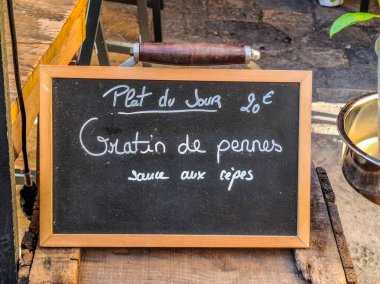 Plat du Jour 20€
Gratin de pennes
sauce aux cèpes